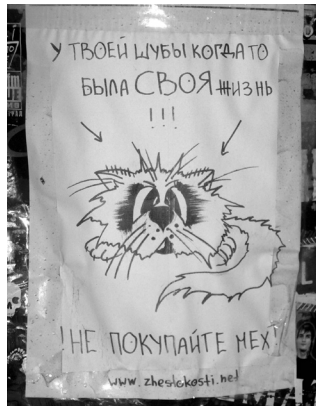 У ТВОЕЙ ШУБЫ КОГДА ТО
БЫЛА СВОЯ ЖИЗНЬ
!!!
!НЕ ПОКУПАЙТЕ МЕХ!
www.zhestokosti.net